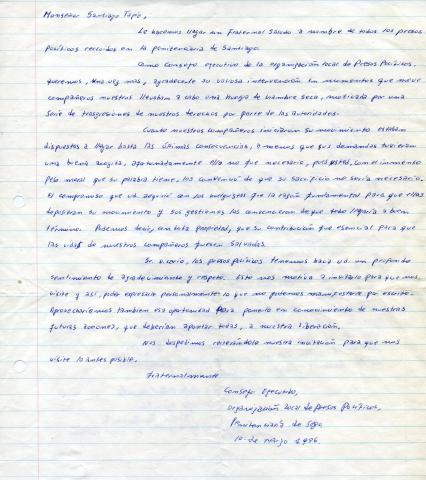 Monseñor Santiago Tapia,
Le hacemos llegar un fraternal saludo a nombre de todos los presos
políticos recluidos en la penitenciaría de Santiago.
Como Consejo ejecutivo de la organización local de Presos Políticos,
queremos, una vez más, agradecerle su valiosa intervención en momentos que nueve
compañeros nuestros llevaban a cabo una huelga de hambre seca, motivada por una
serie de trasgresiones de nuestros derechos por parte de las autoridades.
Cuando nuestros compañeros iniciaron su movimiento estaban
dispuestos a llegar hasta las últimas consecuencias, a menos que sus demandas tuvieran
una buena acogida, afortunadamente ello no fue necesario, pues usted, con el inmenso
peso moral que su palabra tiene, los convenció de que su sacrificio no sería necesario.
El compromiso que ud. asumió con los huelguistas fue la razón fundamental para que ellos
depusieran su movimiento y sus gestiones los convencieron de que todo llegaría a buen
término. Podemos decir, con toda propiedad, que su contribución fue esencial para que
las vidas de nuestros compañeros fuesen salvadas.
Sr. Vicario, los presos políticos tenemos hacia ud. un profundo
sentimiento de agradecimiento y respeto. Esto nos motiva a invitarlo para que nos
visite y así, poder expresarle personalmente lo que no podemos manifestarle por escrito.
Aprovecharíamos también esa oportunidad para ponerlo en conocimiento de nuestras
futuras acciones, que deberían apuntar todas, a nuestra liberación.
Nos despedimos reiterándole nuestra invitación para que nos
visite lo antes posible.
Fraternalmente
Consejo Ejecutivo,
Organización Local de Presos Políticos,
Penitenciaría de Stgo
10 de Marzo 1986.